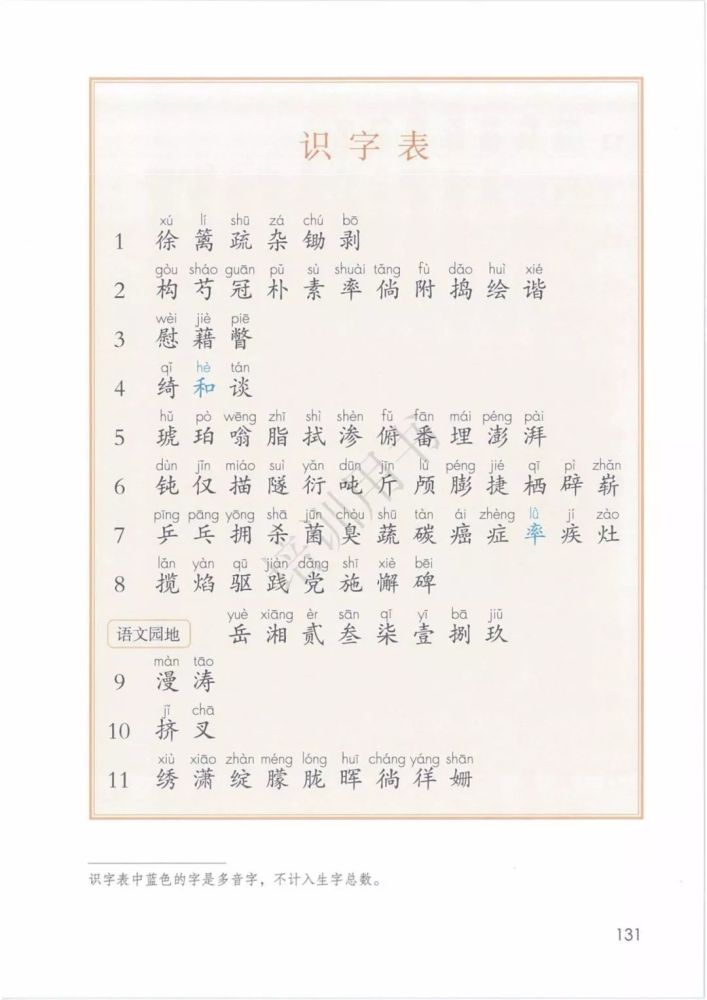 识字表
xú lí shū zá chú bō
1 徐 篱 疏 杂 锄 剥
gòu sháo guān pǔ sù shuài tǎng fù dǎo huì xié
2 构 芍 冠 朴 素 率 倘 附 捣 绘 谐
wèi jiè piē
3 慰 藉 瞥
qǐ hè tán
4 绮 和 谈
hǔ pò wēng zhī shì shèn fǔ fān mái péng pài
5 琥 珀 嗡 脂 拭 渗 俯 番 埋 澎 湃
dùn jǐn miáo suì yǎn dūn jīn lú péng jié qī pì zhǎn
6 钝 仅 描 隧 衍 吨 斤 颅 膨 捷 栖 辟 崭
pīng pāng yōng shā jūn chòu shū tàn ái zhèng lǜ jí zào
7 乒 乓 拥 杀 菌 臭 蔬 碳 癌 症 率 疾 灶
lǎn yàn qū jiàn dǎng shī xiè bēi
8 揽 焰 驱 践 党 施 懈 碑
yuè xiāng èr sān qī yī bā jiǔ
语文园地 岳 湘 贰 叁 柒 壹 捌 玖
màn tāo
9 漫 涛
jǐ chā
10 挤 叉
xiù xiāo zhàn méng lóng huī cháng yáng shān
11 绣 潇 绽 朦 胧 晖 徜 徉 姗
培训用书
识字表中蓝色的字是多音字，不计入生字总数。
131